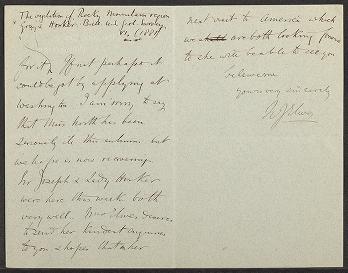 The vegetation of Rocky Mountain region
Gray & Hooker. Bull. U.S. Geol. Survey
VI. (1881)
for it. If not perhaps it
could be got by applying at
Washington. I am sorry to say
that Miss North has been
seriously ill this autumn but
we hope is now recovering.
Sir Joseph & Lady Hooker
were here this week both
very well. Mrs Elwes desires
to send her kindest
to you & hopes that in her
next visit to America which
we are both looking forward
to she will be able to see you
believe me
yours very sincerely
H J Elwes